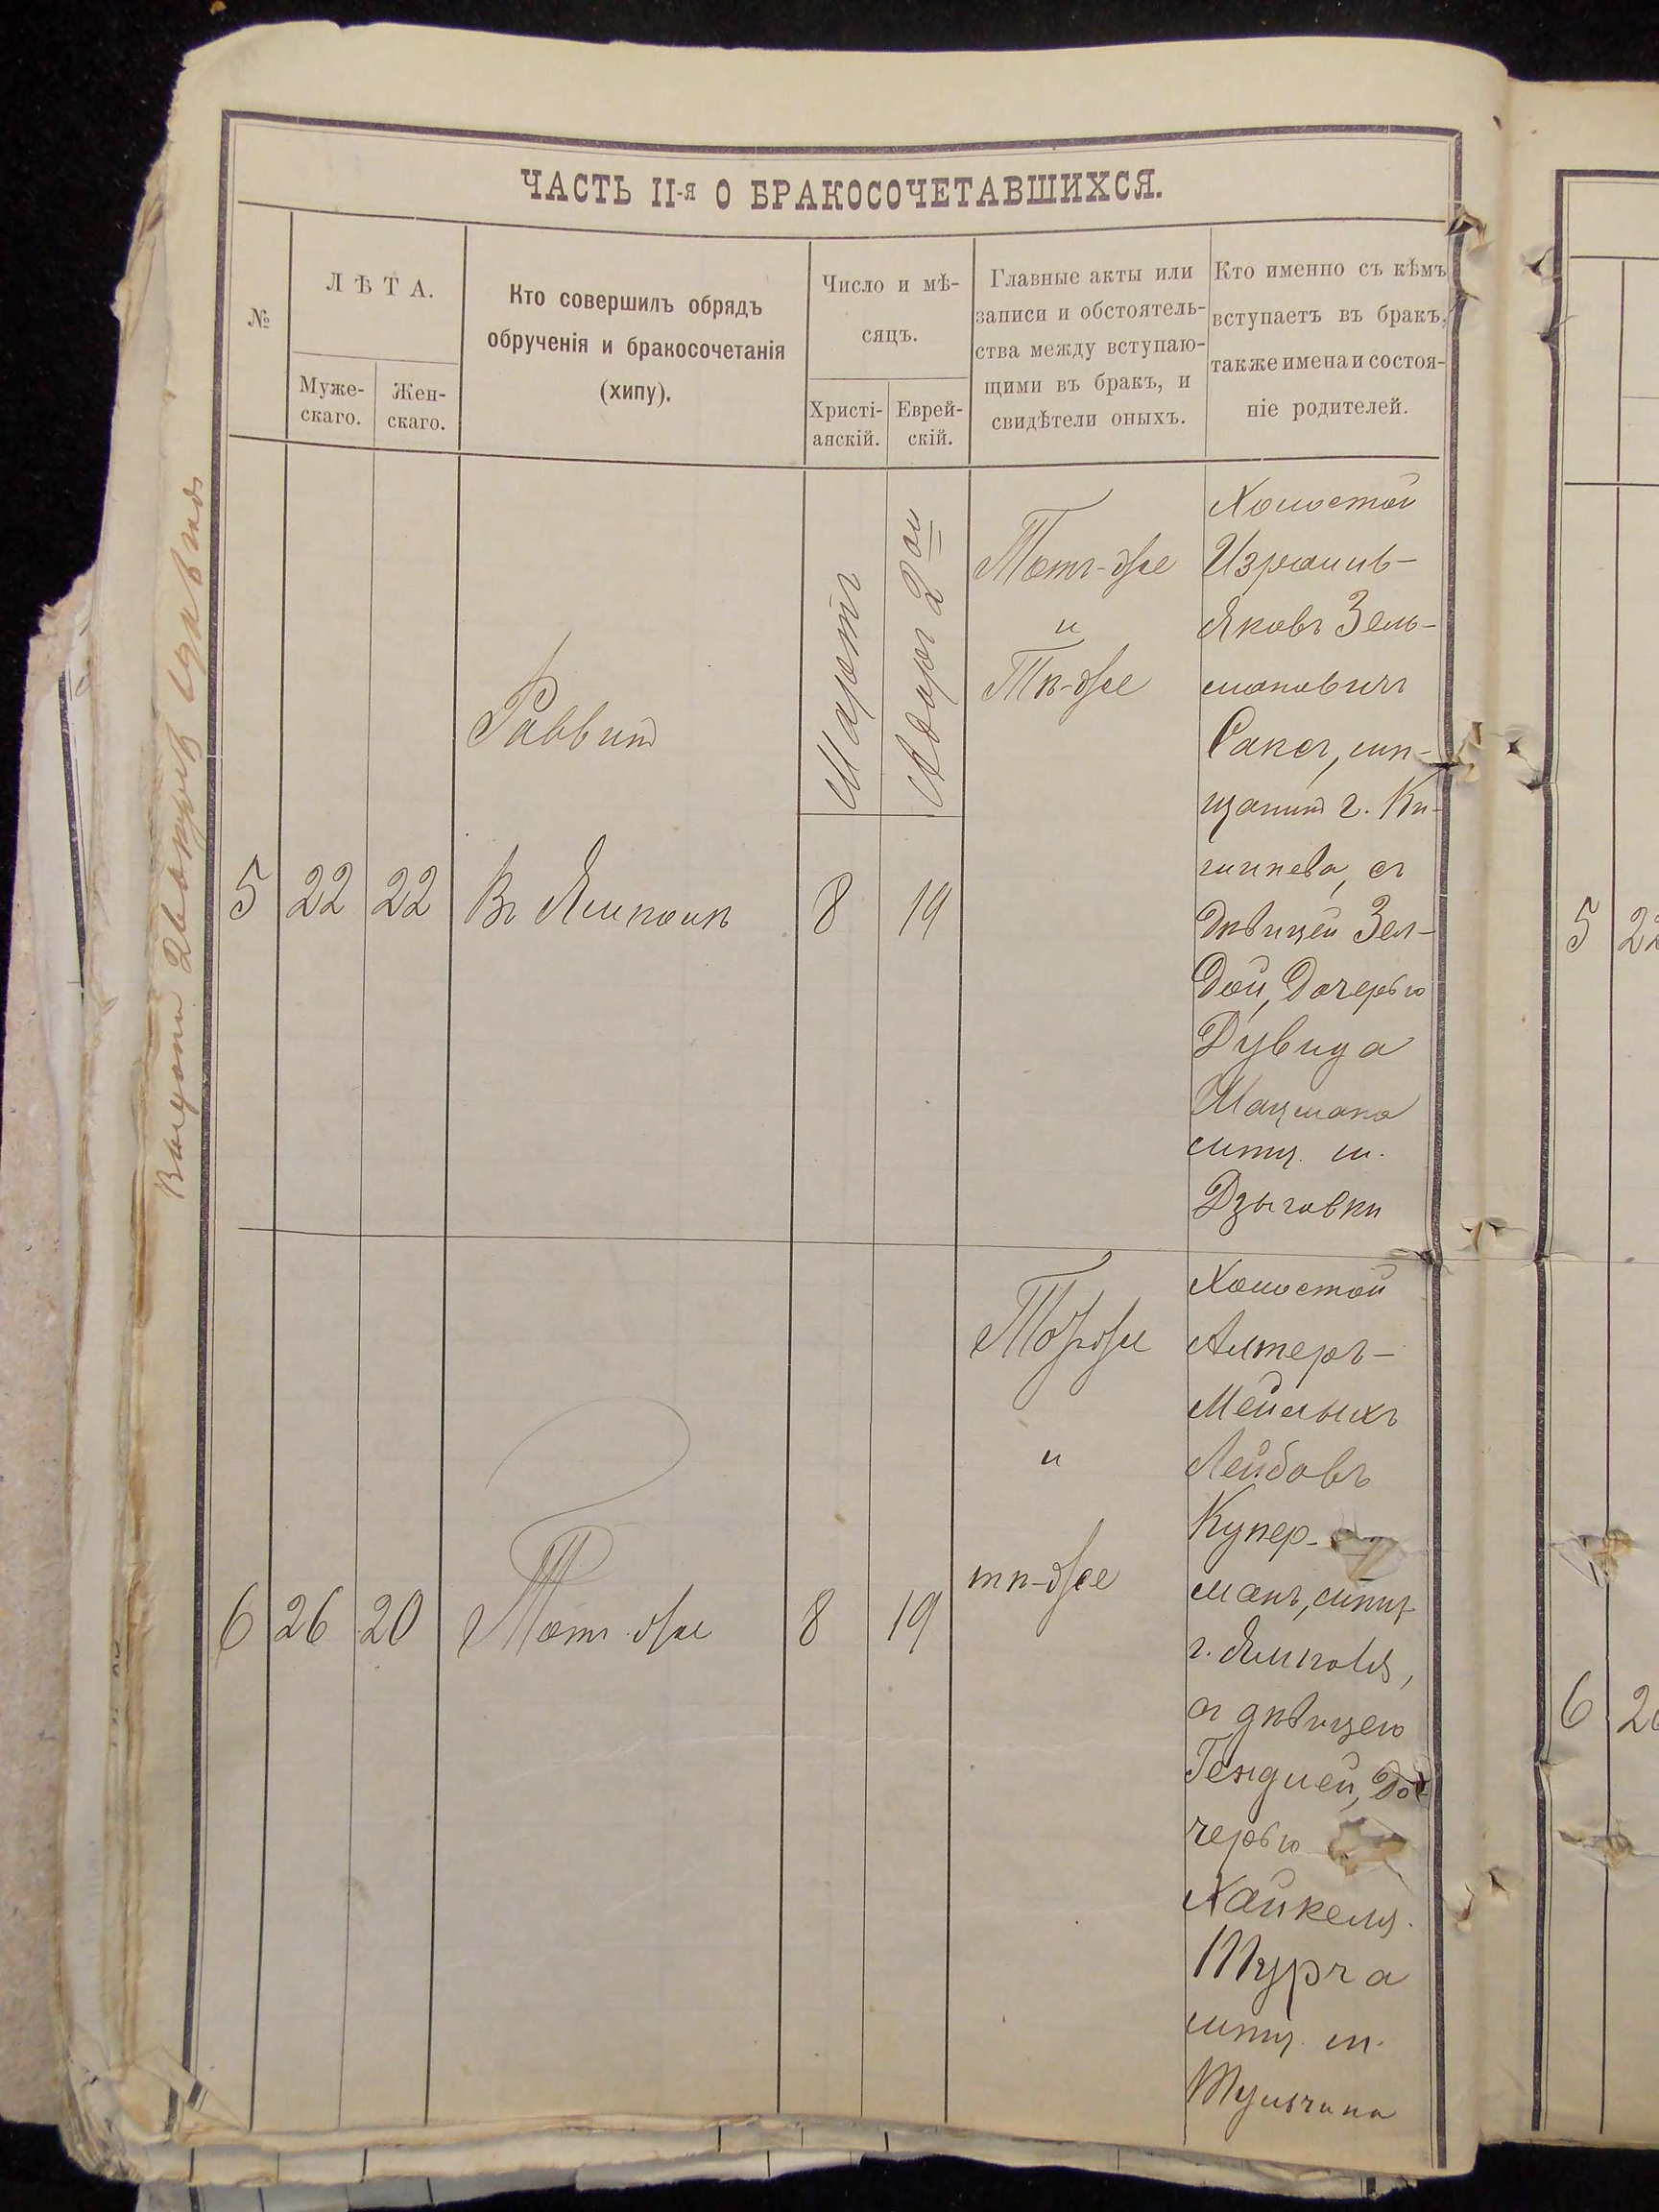 ЧАСТЬ II-я О БРАКОСОЧЕТАВШИХСЯ.
№
ЛѢТА.
Муже-
скаго.
Жен-
скаго.
Кто совершилъ обрядъ
обрученія и бракосочетанія
(хипу).
Число и мѣ-
сяцъ.
Христі-
анскій.
Еврей-
скій.
Главные акты или
записи и обстоятель-
ства между вступаю-
щими въ бракъ, и
свидѣтели оныхъ.
Кто именно съ кѣмъ
вступаетъ въ бракъ,
также имена и состоя-
ніе родителей.
5
22
22
Раввинъ
Въ Ямполѣ
Мартъ
8
Адаръ 2ой
19
Тотъ-же
и
Тѣ-же
Холостой
Израиль-
Яковъ Зель-
мановичъ
Сакъ, мѣ-
щанинъ г. Ки-
шинева, съ
дѣвицей Зел-
дой, дочерью
Дувида
Мацмана
мѣщ. м.
Дзыговки
6
26
20
Тотъ-же
8
19
Тотъ-же
и
тѣ-же
Холостой
Алтеръ-
Мейлыхъ
Лейбовъ
Купер-
манъ, мѣщ.
г. Ямполя,
съ дѣвицею
Гендлей, до-
черью
Хайкеля
Турча
мѣщ. м.
Тульчина
5
22
6